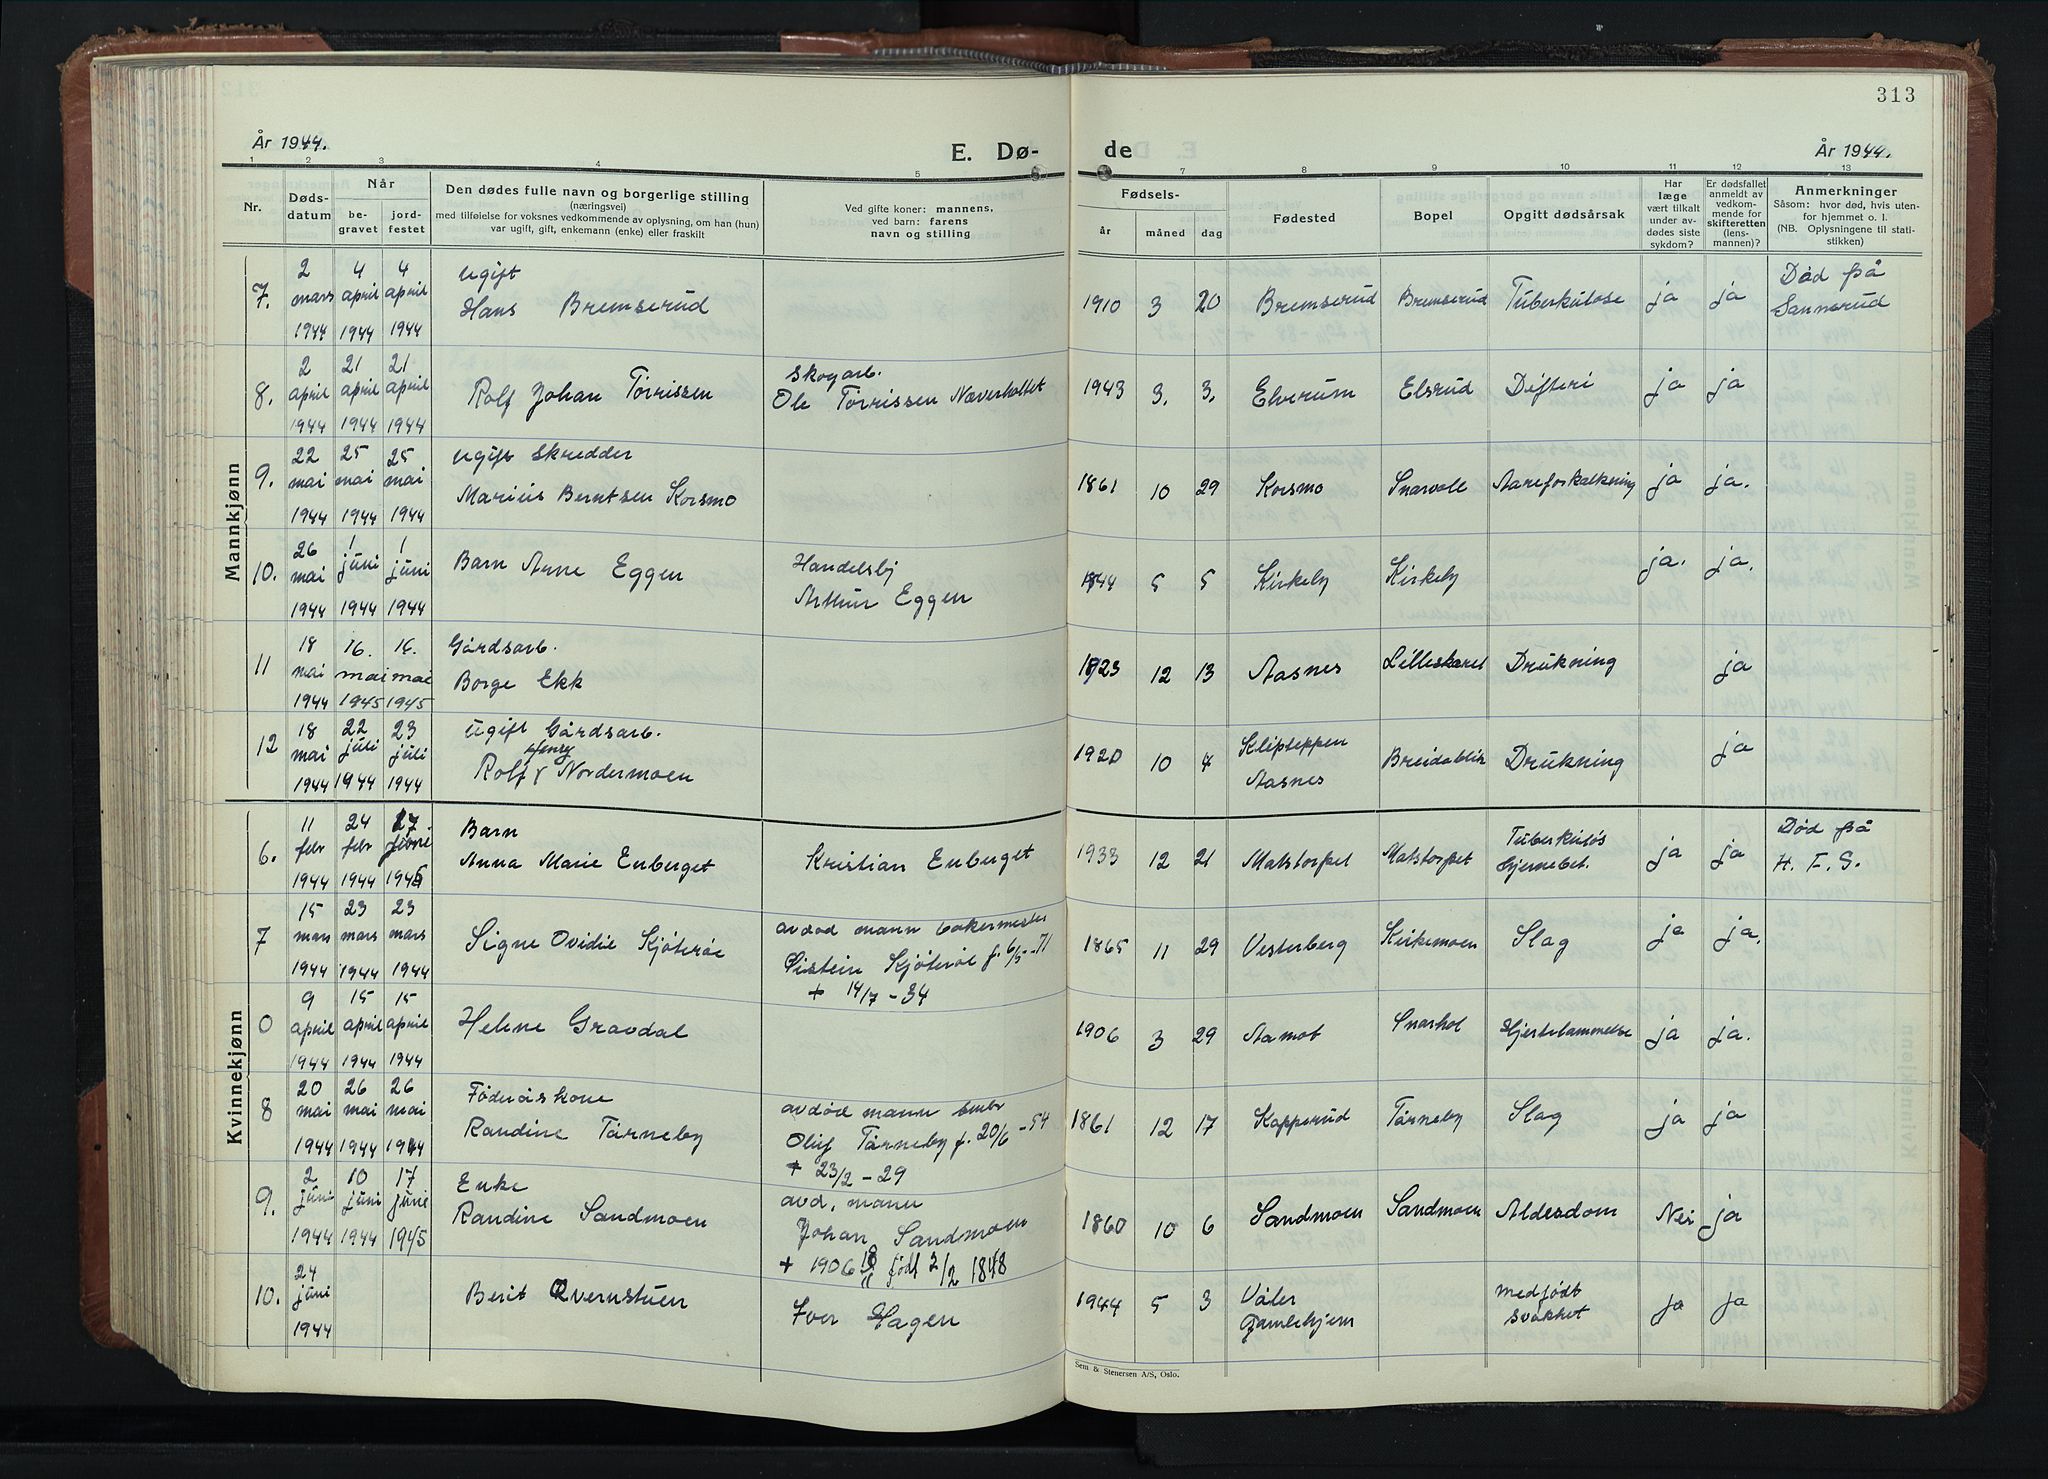 313
År 1944.
E. Dø-
de
År 1944.
1 2 3 4 5 6 7 8 9 10 11 12 13
Nr.
Døds-
datum
Når
be-
gravet
jord-
festet
Den dødes fulle navn og borgerlige stilling
(næringsvei)
med tilføielse for voksnes vedkommende av oplysning, om han (hun)
var ugift, gift, enkemann (enke) eller fraskilt
Ved gifte koner: mannens,
ved barn: farens
navn og stilling
Fødsels-
år
måned
dag
Fødested
Bopel
Opgitt dødsårsak
Har
læge
vært tilkalt
under av-
dødes siste
sykdom?
Er dødsfallet
anmeldt av
vedkom-
mende for
skifteretten
(lens-
mannen)?
Anmerkninger
Såsom: hvor død, hvis uten-
for hjemmet o. l.
(NB. Oplysningene til stati-
stikken)
Mannkjønn
7.
2 mars 1944
4 april 1944
4 april 1944
Ugift
Hans Bremserud
1910 3 20 Bremserud Bremserud Tuberkulose ja ja
Død på
Sannerud
8.
2 april 1944
21 april 1944
21 april 1944
Rolf Johan Tørrissen
Skogarb.
Ole Tørrissen Næverholtet
1943 3. 3. Elverum Elsrud Difteri ja ja
9.
22 mai 1944
25 mai 1944
25 mai 1944
Ugift Skredder
Marius Berntsen Korsmo
1861 10 29 Korsmo Snarvoll Aareforkalkning ja ja.
10.
26 mai 1944
1 juni 1944
1 juni 1944
Barn Arne Eggen
Handelsbj
Arthur Eggen
1944 5 5 Kirkeby Kirkeby ja. ja.
11
18 mai 1944
16. mai 1945
16. mai 1945
Gårdsarb.
Borge Ekk
1923 12 13 Aasnes Lilleskaret Drukning ja
12
18 mai 1944
22 juli 1944
23 juli 1944
Ugift Gårdsarb.
Henry
Rolf Nordermoen
1920 10 4
Aasnes
Breidablik Drukning ja
Kvinnekjønn
6.
11 febr 1944
24 febr 1944
27
Barn
Anna Marie Enberget
Kristian Enberget
1933 12 21 Matstorpet Matstorpet
Tuberkuløs
Hjernebet.
ja ja
Død på
H. F. S.
7
15 mars 1944
23 mars 1944
23 mars 1944
Signe Ovidie Kjøterøe
avdød mann bakermester
Øistein Kjøterøe f. 6/5-71
+ 14/7-34
1865 11 29 Vesterberg Kirkemoen Slag ja ja.
0
9 april 1944
15 april 1944
15 april 1944
Helene Gravdal
1906 3 29 Aamot Snarhol Hjertelammelse ja ja.
8
20 mai 1944
26 mai 1944
26 mai 1944
Føderåskone
Randine Tørneby
avdød mann brukr
Oluf Tørneby f. 20/6-54
+ 23/2-29
1861 12 17 Kapperud Tørneby Slag ja ja
9.
2 juni 1944
10 juni 1944
17 juni 1945
Enke
Randine Sandmoen
avd. mann
Johan Sandmoen
+ 1906 18/11 født 2/2 1848
1860 10 6 Sandmoen Sandmoen Aldesdom Nei ja
10.
24 juni 1944
Berit Qvernstuen
Iver Hagen
1944 5 3
Våler
Gamlehjem
medfødt
svakhet
ja ja
Sem & Stenersen A/S, Oslo.